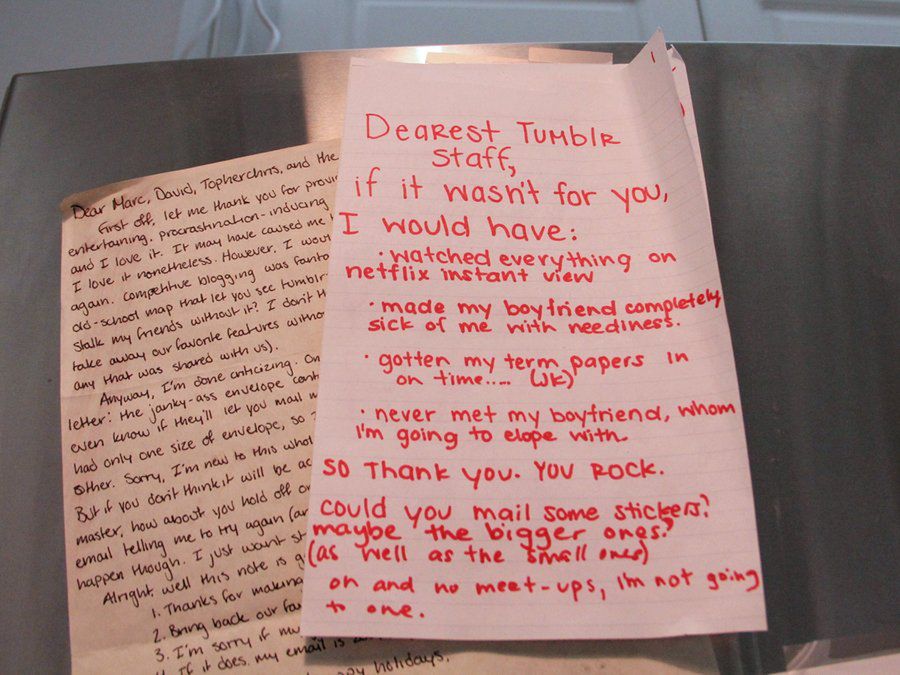 Dear Marc, David, Topherchris, and the
First off, let me thank you for provi
entertaining, procrastination-inducing
and I love it. It may have caused me
I love it nonetheless. However, I wou
again. Competitive blogging was fanta
old-school map that let you see tumblr
stalk my friends without it? I don't th
take away our favorite features witho
any that was shared with us).
Anyway, I'm done criticizing. On
letter: the janky-ass envelope cont
even know if they'll let you mail m
had only one size of envelope, so
other. Sorry, I'm new to this whol
But if you don't think it will be ac
master, how about you hold off on
email telling me to try again (an
happen though. I just want st
Alright, well this note is g
1. Thanks for making
2. Bring back our fa
3. I'm sorry if my
If it does, my email is
holidays.
Dearest Tumblr
Staff,
if it wasn't for you,
I would have:
· watched everything on
netflix instant view
· made my boyfriend completely
sick of me with neediness.
· gotten my term papers in
on time.... (JK)
· never met my boyfriend, whom
I'm going to elope with.
So Thank you. You Rock.
could you mail some stickers?
maybe the bigger ones?
(as well as the small ones)
oh and no meet-ups, I'm not going
to one.